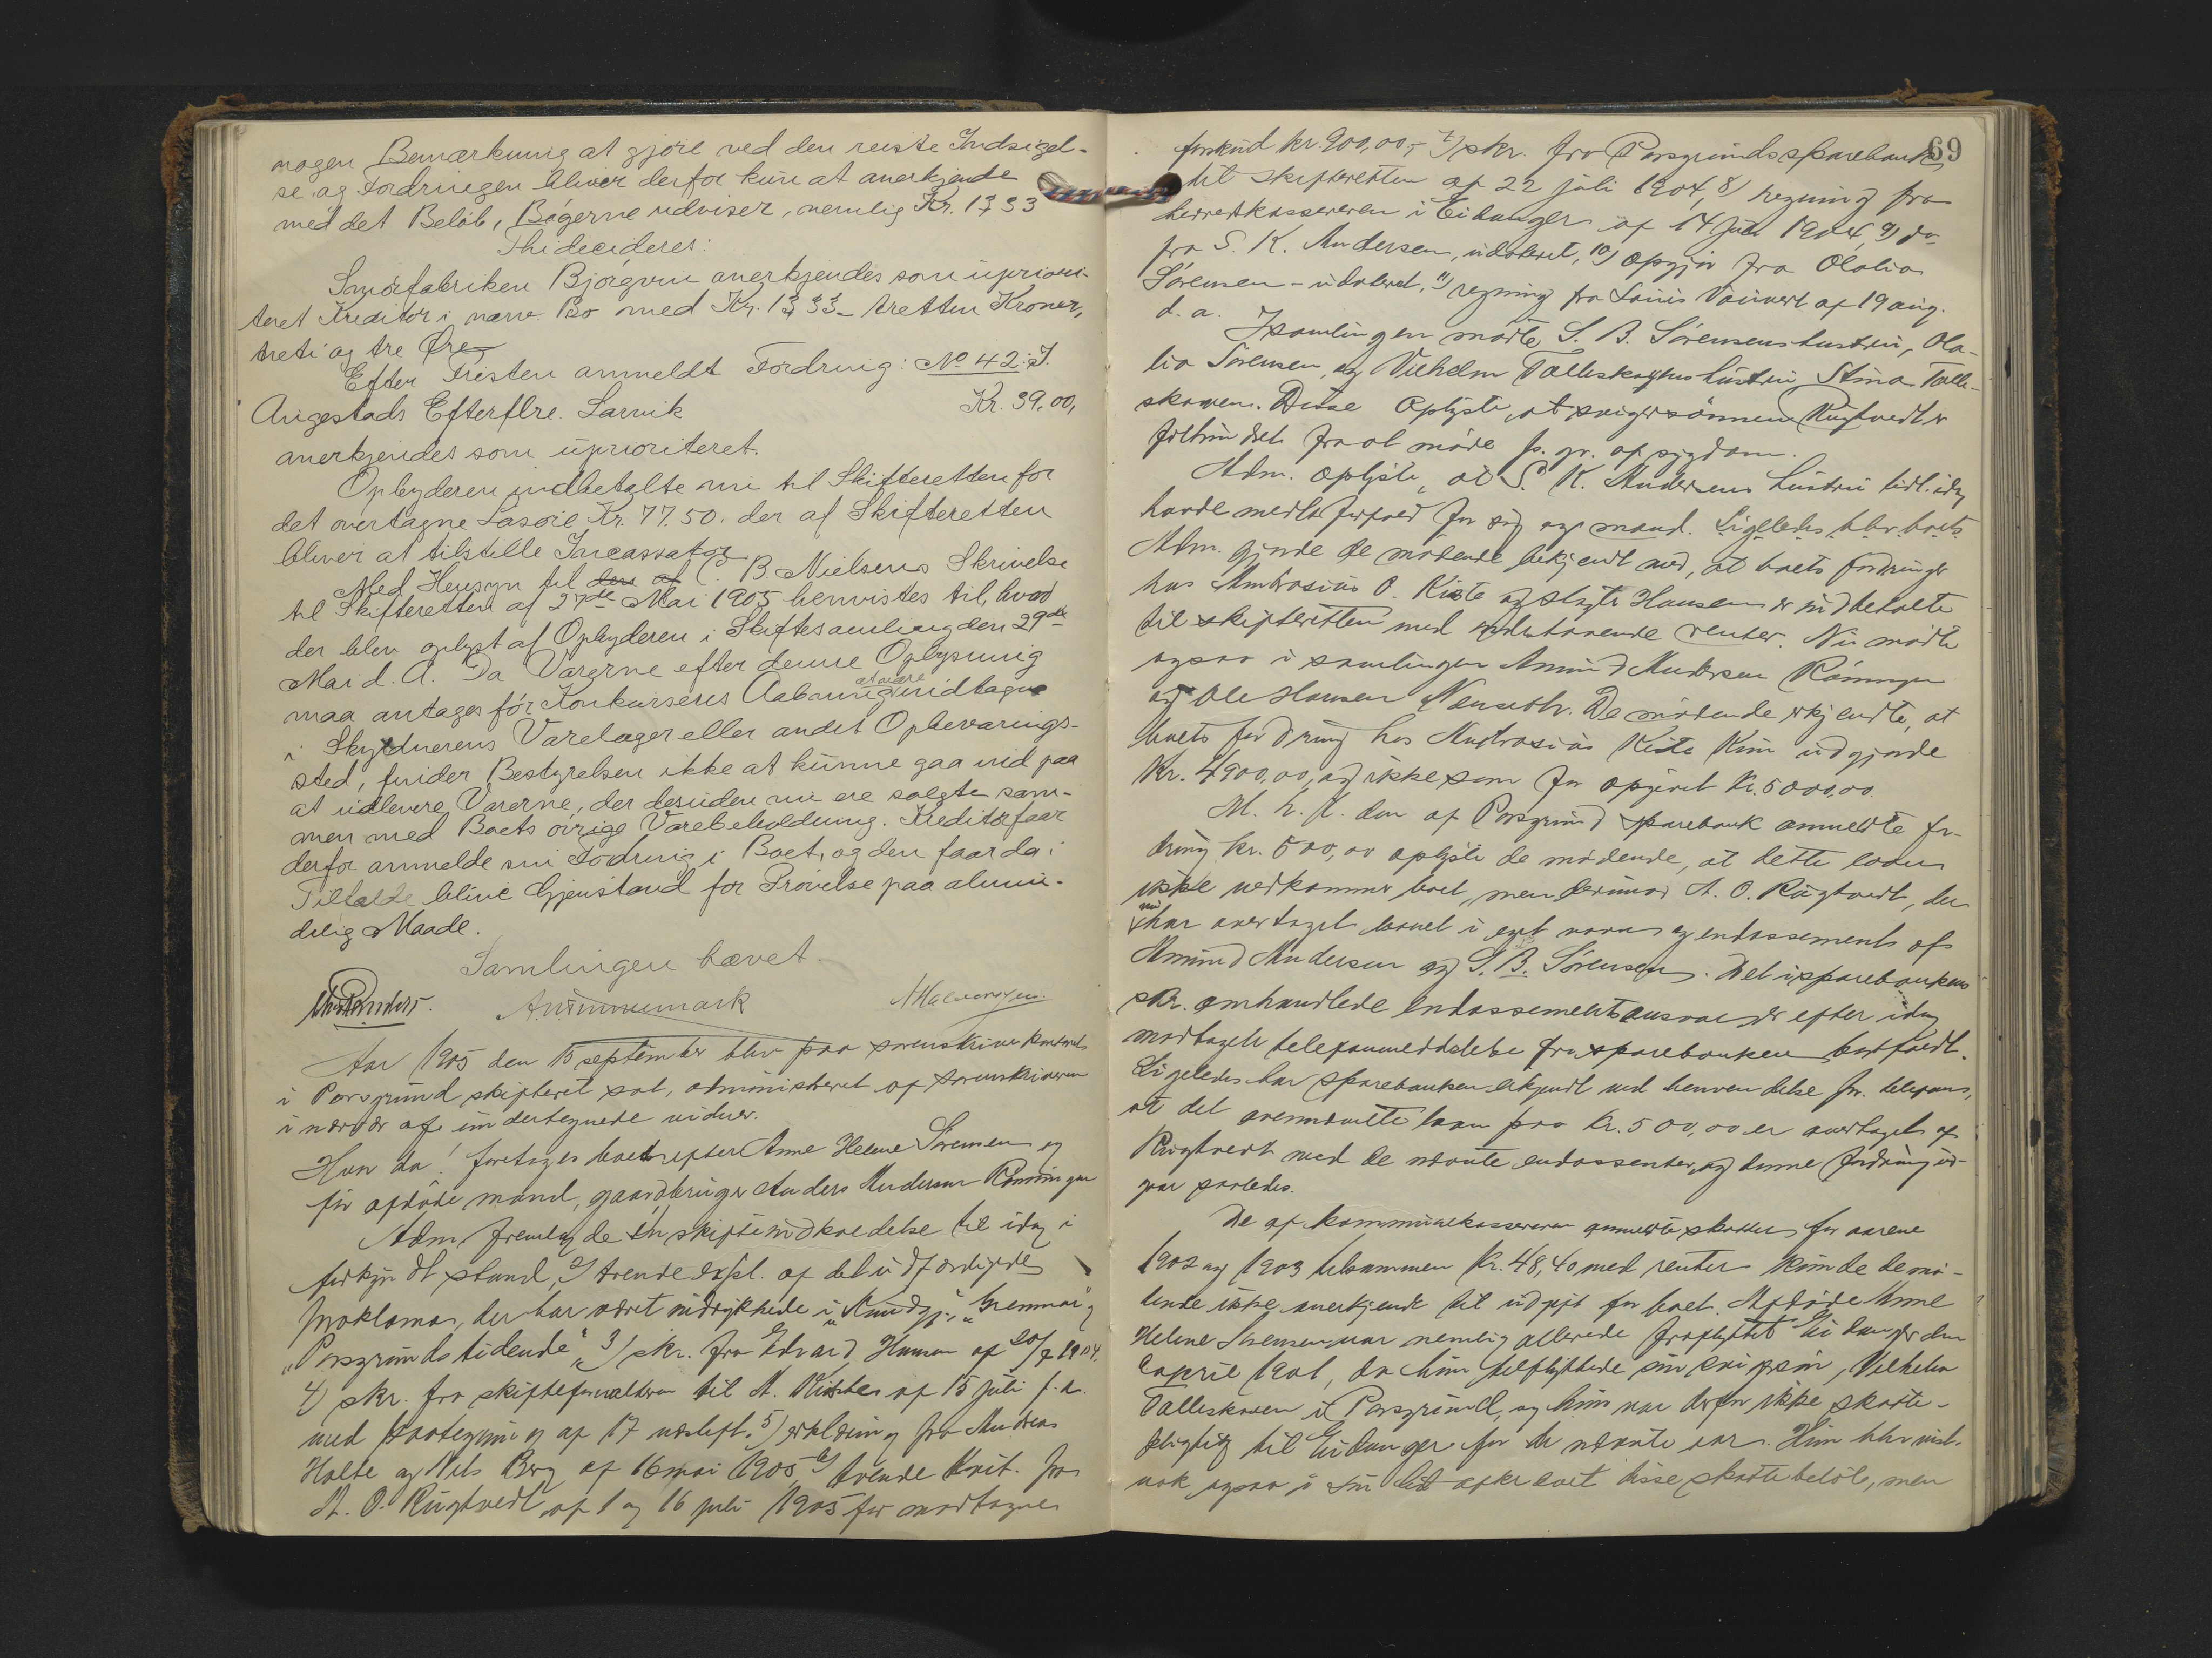 nogen Bemærkning at gjøre ved den reiste Indsigel-
se og Fordringen bliver derfor kun at anerkjende
med det Beløb, Bøgerne udviser, nemlig Kr. 13 33
Thi decideres:
Smørfabriken Bjørgvin anerkjendes som upriori-
teret Kreditor i nærv. Bo med Kr. 13,33 - tretten Kroner,
treti og tre Øre
Efter Fristen anmeldt Fordring: No 42: J.
Augestads Efterflre. Larvik Kr. 39,00,
anerkjendes som uprioriteret.
Opbyderen indbetalte nu til Skifteretten for
det overtagne Løsøre Kr. 77.50. der af Skifteretten
bliver at tilstille Incassator
Med Hensyn til C. B. Nielsens Skrivelse
til Skifteretten af 27de Mai 1905 henvistes til, hvad
der blev oplyst af Opbyderen i Skiftesamling den 29de
Mai d. A. Da Varerne efter denne Oplysning
maa antages før Konkursens Aabning at være indtagne
i Skyldnerens Varelager eller andet Opbevarings-
sted, finder Bestyrelsen ikke at kunne gaa ind paa
at udlevere Varerne, der desuden nu ere solgte sam-
men med Boets øvrige Varebeholdning. Kreditor faar
derfor anmelde sin Fodring i Boet, og den faar da i
Tilfælde blive Gjenstand for Prøvelse paa almin-
delig Maade.
Samlingen hævet.
Aar 1905 den 15 september blev paa sorenskriverkontoret
i Porsgrund skifteret sat, administreret af sorenskriveren
i nærvær af undertegnede vidner.
Hvor da! foretoges boet efter Anne Helene Sørensen og
før afdøde mand, gaardbruger Anders Andersen Rønningen
Adm. fremlagde en skifteindkaldelse til idag i
forkyndt stand, 2) trende expl. af det udfærdigede
proklama, der har været indrykkede i „Kundgj.", „Grenmar" og
„Porsgrunds tidende", 3) skr. fra Edvard Hansen af 20/7 1904,
4) skr. fra skifteforvalteren til A. Kiste af 15 juli f. a.
med paategning af 17 næsteft. 5) erklæring fra Andreas
Holte og Nils Berg af 16 mai 1905, 6) tvende kvit. fra
A. O. Rugtvedt af 1 og 16 juli 1905 for modtagne
69
forskud kr. 900,00, 7) skr. fra Porsgrunds sparebank
til skifteretten af 22 juli 1904, 8) regning fra
herredskassereren i Eidanger af 14 juli 1904, 9) do
fra S. K. Andersen, udateret, 10) opgjør fra Olalia
Sørensen - udateret, 11) regning fra Louis af 19 aug.
d. a.
I samlingen mødte S. B. Sørensens hustru, Ola-
lia Sørensen, og Vilhelm Talleskogens hustru Stina Talle-
skoven. Disse oplyste, at svigersønnen Rugtvedt er
forhindret fra at møde p. gr. af sygdom.
Adm. oplyste, at S. K. Andersens hustru tidl. idag
havde meldt forfald for sig og mand. Ligeledes blev boets
Adm. gjorde de mødende bekjendt med, at boets fordringer
hos Ambrosius O. Kiste og Hansen er indbetalte
til skifteretten med vedkommende renter. Nu mødte
ogsaa i samlingen Amund Andersen Rønningen
og Ole Hansen Nenseth. De mødende erkjendte, at
boets fordring hos Ambrosius Kiste kun udgjorde
Kr. 4900,00, og ikke som før opgivet Kr. 5000,00.
M. h. t. den af Porsgrund sparebank anmeldte for-
dring kr. 500,00 oplyste de mødende, at dette laan
ikke vedkommer boet, men derimod A. O. Rugtvedt, der
nu har overtaget laanet i eget navn og endossement af
Amund Andersen og S. B. Sørensen. Det i sparebankens
skr. omhandlede endossementsansvar er efter idag
modtagelt telefonmeddelelse fra sparebanken bortfaldt.
Ligeledes har sparebanken erkjendt ved henvendelse pr. telefon,
at det ovennævnte laan paa kr. 500,00 er overtaget af
Rugtvedt med de nævnte endossenter, og denne fordring ud-
gaar saaledes.
De af kommunekassereren anmeldte skatter for aarene
1902 og 1903 tilsammen Kr. 48,40 med renter kunde de mø-
dende ikke anerkjende til udgift for boet. Afdøde Anne
Helene Sørensen var nemlig allerede fraflyttet Eidanger den
1 april 1901, da hun tilflyttede sin svigersøn, Vilhelm
Talleskoven i Porsgrund, og hun var derfor ikke skatte-
pligtig til Eidanger for de nævnte aar. Hun blev vist-
nok ogsaa i sin tid afkrævet disse skattebeløb, men